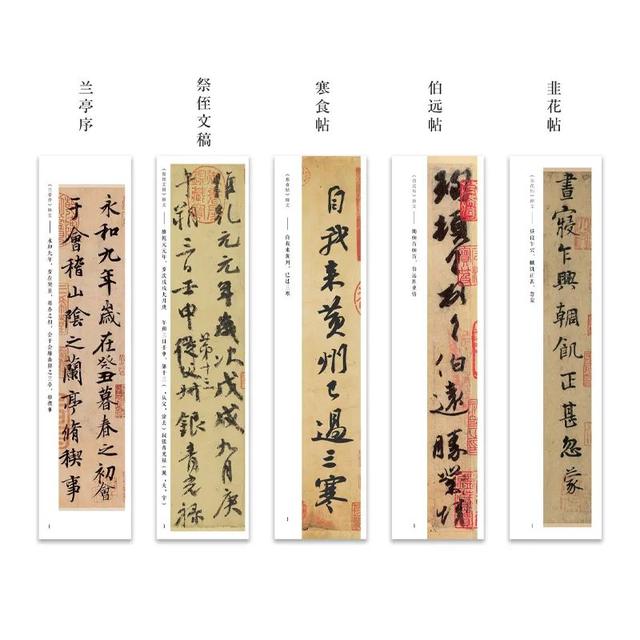 兰亭序
祭侄文稿
寒食帖
伯远帖
韭花帖
《兰亭序》释文 —— 永和九年,岁在癸丑,暮春之初,会于会稽山阴之兰亭,修禊事
永和九年歲在癸丑暮春之初會
于會稽山陰之蘭亭脩稧事
1
《祭侄文稿》释文 —— 维乾元元年,岁次戊戌九月庚
維乾元元年歲次戊戌九月庚
午朔三日壬申
第十三
從父
銀青光祿
1
《寒食帖》释文 —— 自我来黄州,已过三寒
自我来黄州已過三寒
1
《伯远帖》释文 —— 珣顿首顿首,伯远胜业情
珣頓首頓首伯遠勝業情
1
《韭花帖》释文 —— 昼寝乍兴,輖饥正甚,忽蒙
晝寢乍興輖飢正甚忽蒙
1